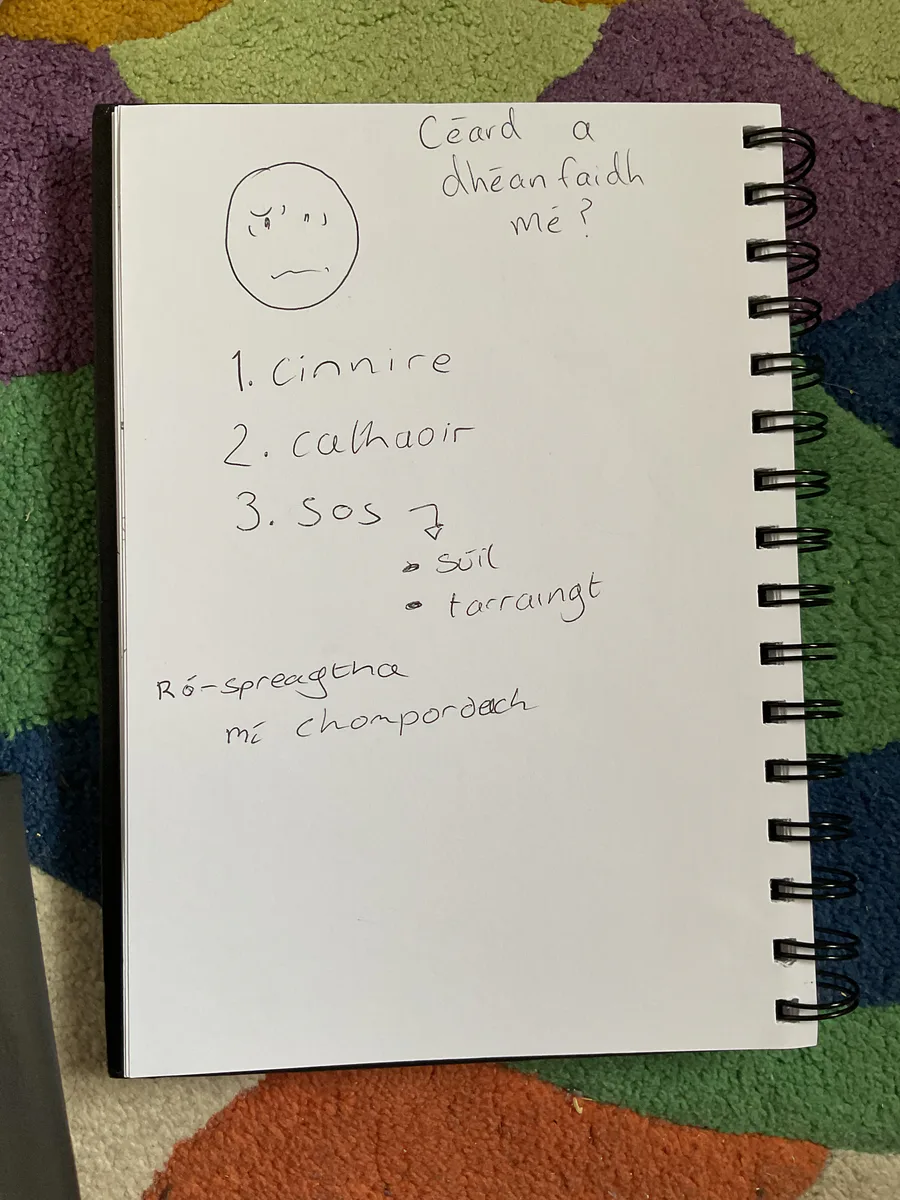 Céard a
dhéanfaidh
mé?
1. cinnire
2. cathaoir
3. sos
• súil
• tarraingt
Ró-spreagtha
mí chompordach